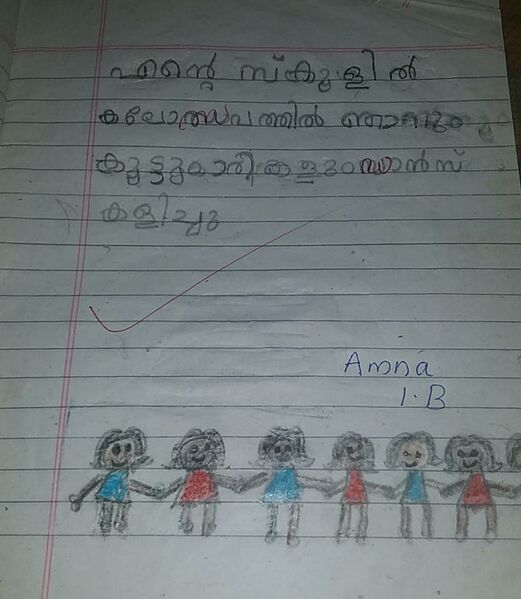 എന്റെ സ്കൂളിൽ
കലോത്സവത്തിൽ ഞാനും
കൂട്ടുകാരികളും ഡാൻസ്
കളിച്ചു
Amna
1.B